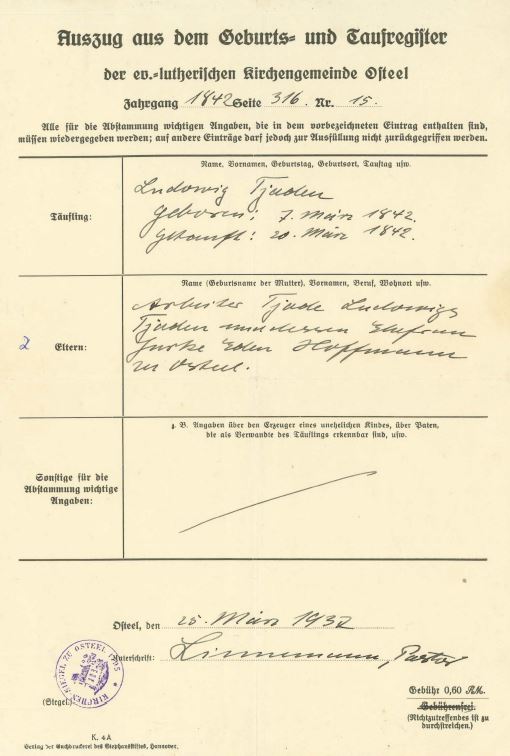 Auszug aus dem Geburts- und Taufregister
der ev.-lutherischen Kirchengemeinde Osteel
Jahrgang 1842 Seite 316. Nr. 15.
Alle für die Abstammung wichtigen Angaben, die in dem vorbezeichneten Eintrag enthalten sind,
müssen wiedergegeben werden; auf andere Einträge darf jedoch zur Ausfüllung nicht zurückgegriffen werden.
Name, Vornamen, Geburtstag, Geburtsort, Tauftag usw.
Täufling:
Ludowig Tjaden
geboren: 7. März 1842.
getauft: 20. März 1842.
Name (Geburtsname der Mutter), Vornamen, Beruf, Wohnort usw.
2 Eltern:
Arbeiter Tjade Ludowigs
Tjaden und dessen Ehefrau
Eden Hoffmann
zu Osteel.
z. B. Angaben über den Erzeuger eines unehelichen Kindes, über Paten,
die als Verwandte des Täuflings erkennbar sind, usw.
Sonstige für die
Abstammung wichtige
Angaben:
Osteel, den 25. März 1937
Unterschrift: Linnemann, Pastor
KIRCHEN SIEGEL ZU OSTEEL 1795
(Siegel)
Gebühr 0,60 RM.
Gebührenfrei.
(Nichtzutreffendes ist zu
durchstreichen.)
K. 4A
Verlag der Buchdruckerei des Stephansstiftes, Hannover.